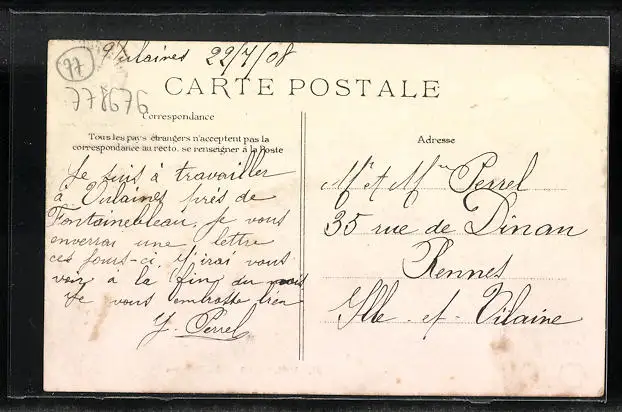 Vulaines 22/7/08
77
778676
CARTE POSTALE
Correspondance
Tous les pays étrangers n'acceptent pas la
correspondance au recto, se renseigner à la Poste
Je suis à travailler
à Vulaines près de
Fontainebleau, je vous
enverrai une lettre
ces jours-ci. J'irai vous
voir à la fin du mois
Je vous embrasse bien
J. Perrel
Adresse
Mr et Mme Perrel
35 rue de Dinan
Rennes
Ille-et-Vilaine